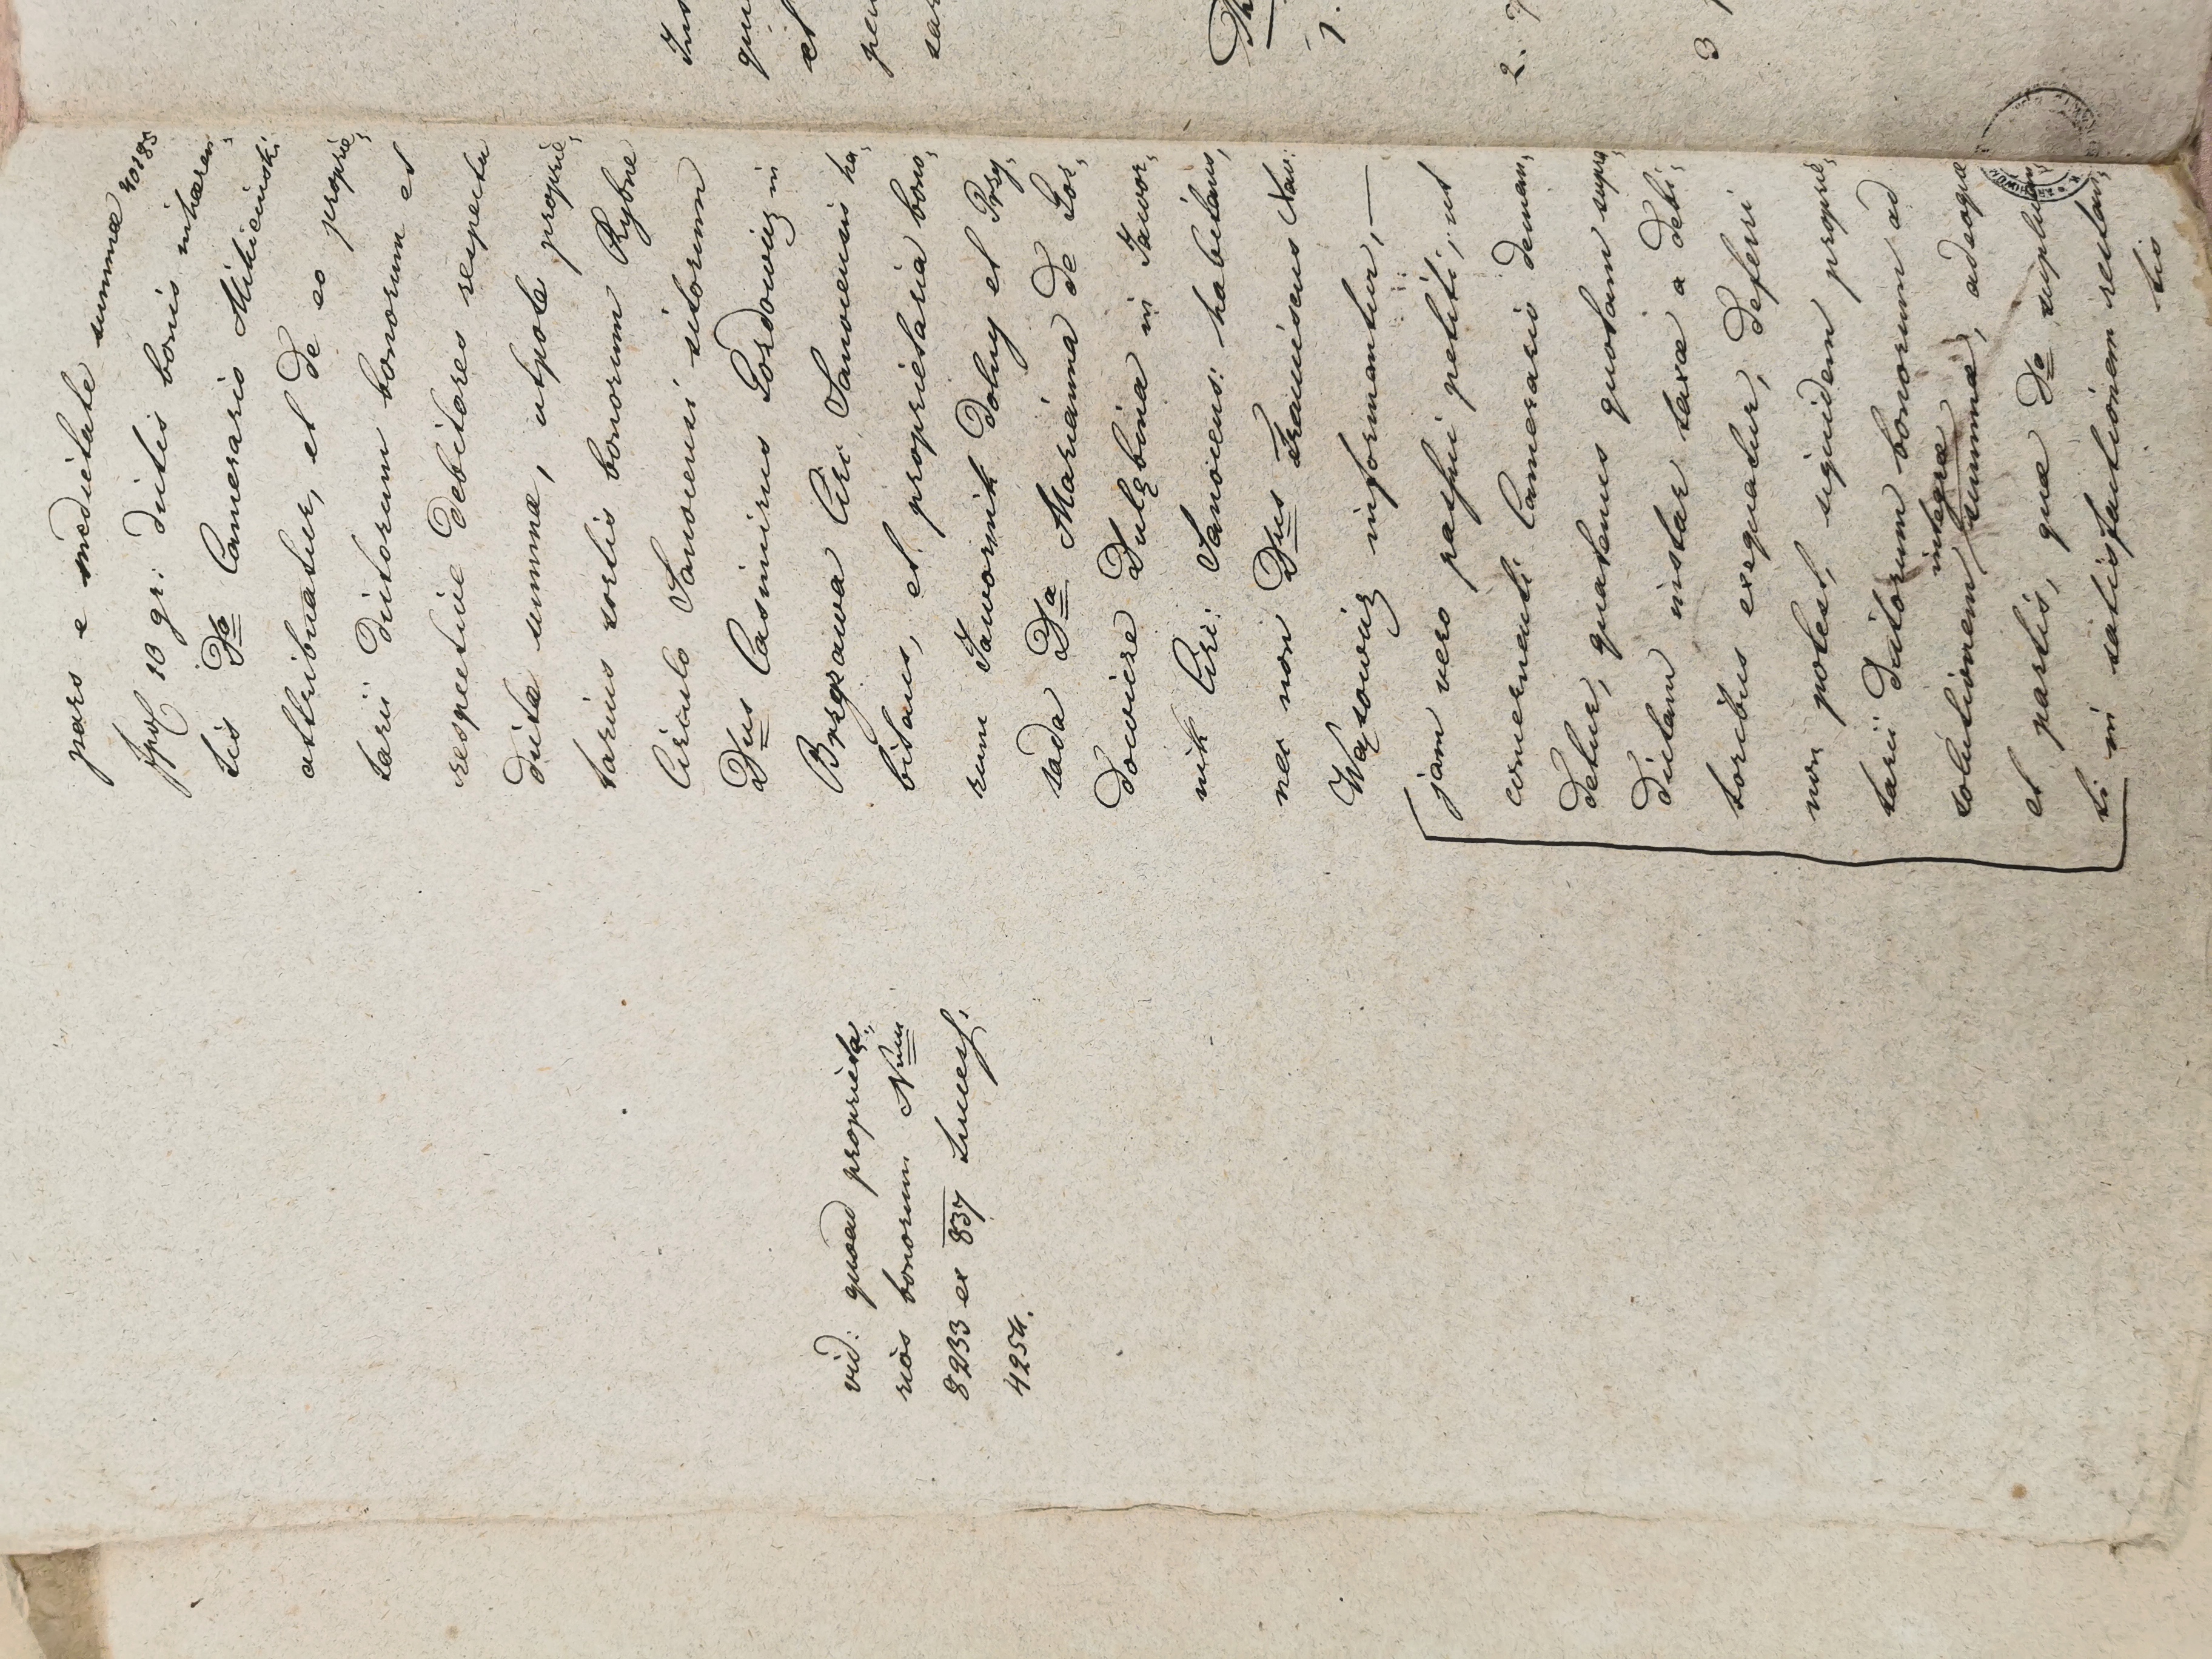 pars e medietate summæ 40285
fpol 10 gr: dictis bonis inhæren„
tis Do Camerario Mikicinski:
attribuatur, et de eo proprie„
tarii dictorum bonorum et
respective debitores respectu
dictæ summæ, utpote proprie„
tarius sortis bonorum Rybne
Circulo Sanocensi sitorum
Dnus Casimirus Gordowicz in
Brzezawa Circ: Sanocensi ha„
bitans, et proprietaria bono„
rum Jawornik dolny et Przy„
sada Dna Marianna de Gor„
dowicze Dulębina in Jawor„
nik Circ: Sanocens: habitans,
nec non Dnus Franciscus Xav:
Wąsowicz informentur, —
jam vero passui petiti, ut
concernenti Camerario deman„
detur, quatenus quotam supra
dictam instar taxæ a debi„
toribus exequatur, deferri
non potest, siquidem proprie„
tarii dictorum bonorum ad
solutionem integræ summæ, adeoque
et partis, quæ Do supplican„
ti in satisfactionem restan„
tis
vid: quoad proprieta„
rios bonorum Num
8233 ex 837 Sucess.
4254.
Ins
qui
et
per
sar
1.
2.
3